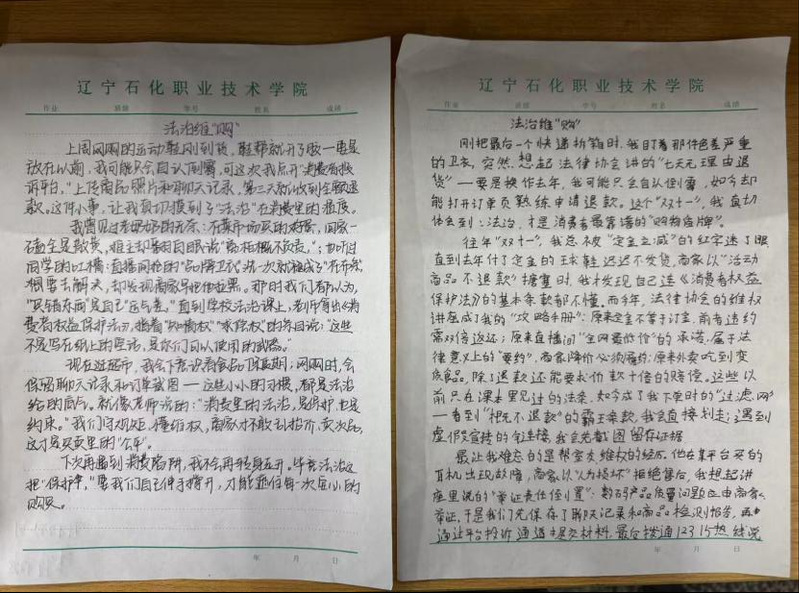 辽宁石化职业技术学院
作业 班级 学号 姓名 成绩
法治维"购"
上周网购的运动鞋刚到货,鞋帮就开了胶一要是
放在以前,我可能只会自认倒霉,可这次我点开"消费者投
诉平台,"上传商品照片和聊天记录,第三天就收到全额退
款。这件小事,让我真切摸到了"法治"在消费里的温度。
我曾见过
同学的吐槽:直播间抢的"品牌卫衣"洗一次就
想要去解决,却发现商家早
直到学校法治课上,老师
费者权益保护法》,指着"知情权""求偿权"的条目说:"这些
不是写在纸上的空话,是你们可以使用的武器。"
现在逛超市,我会下意识看食品的保质期;网购时,会
保留聊天记录和订单截图——这些小小的习惯,都是法治
给的底气。就像老师说的:"消费里的法治,是保护,也是
约束。"我们守规处、懂维权,商家才不敢乱抬价、卖次品,
这才是买卖里的"公平"。
下次再遇到消费陷阱,我不会再转身走开。毕竟法治这
把"保护伞,"要我们自己伸手撑开,才能遮住每一次小小的
购买。
年 月 日
辽宁石化职业技术学院
作业 班级 学号 姓名 成绩
法治维"购"
刚把最后一个快递拆箱时,我盯着那件色差严重
的卫衣,突然想起法律协会讲的"七天无理由退
货"一要是换作去年,我可能只会自认倒霉,如今却
能打开订单页熟练申请退款。这个"双十一",我真切
体会到:法治,才是消费者最靠谱的"购物盾牌"。
往年"双十一",我总被"定金立减"的红字迷了眼
直到去年付了定金的球鞋迟迟不发货,商家以"活动
商品不退款"搪塞时,我才发现自己连《消费者权益
保护法》的基本条款都不懂。而今年,法律协会的维权
讲座成了我的"攻略手册":原来定金不等于订金,前者违约
需双倍返还;原来直播间"全网最低价"的承诺,属于法
律意义上的"要约",商家降价必须履约;原来外卖吃到变
质食品,除了退款还能要求价款十倍的赔偿。这些以
前只在课本里见过的法条,如今成了我下单时的"过滤网"
一看到"概不退款"的霸王条款,我会直接划走;遇到
虚假宣传的链接,我会先截图留存证据
最让我难忘的是帮室友维权的经历。他在某平台买的
耳机出现故障,商家以"人为损坏"拒绝售后,我想起讲
座里说的"举证责任倒置":数码产品质量问题应由商家
举证,于是我们先保存了聊天记录和商品检测报告,再
通过平台投诉通道提交材料,最后拨通12315热线说
年 月 日